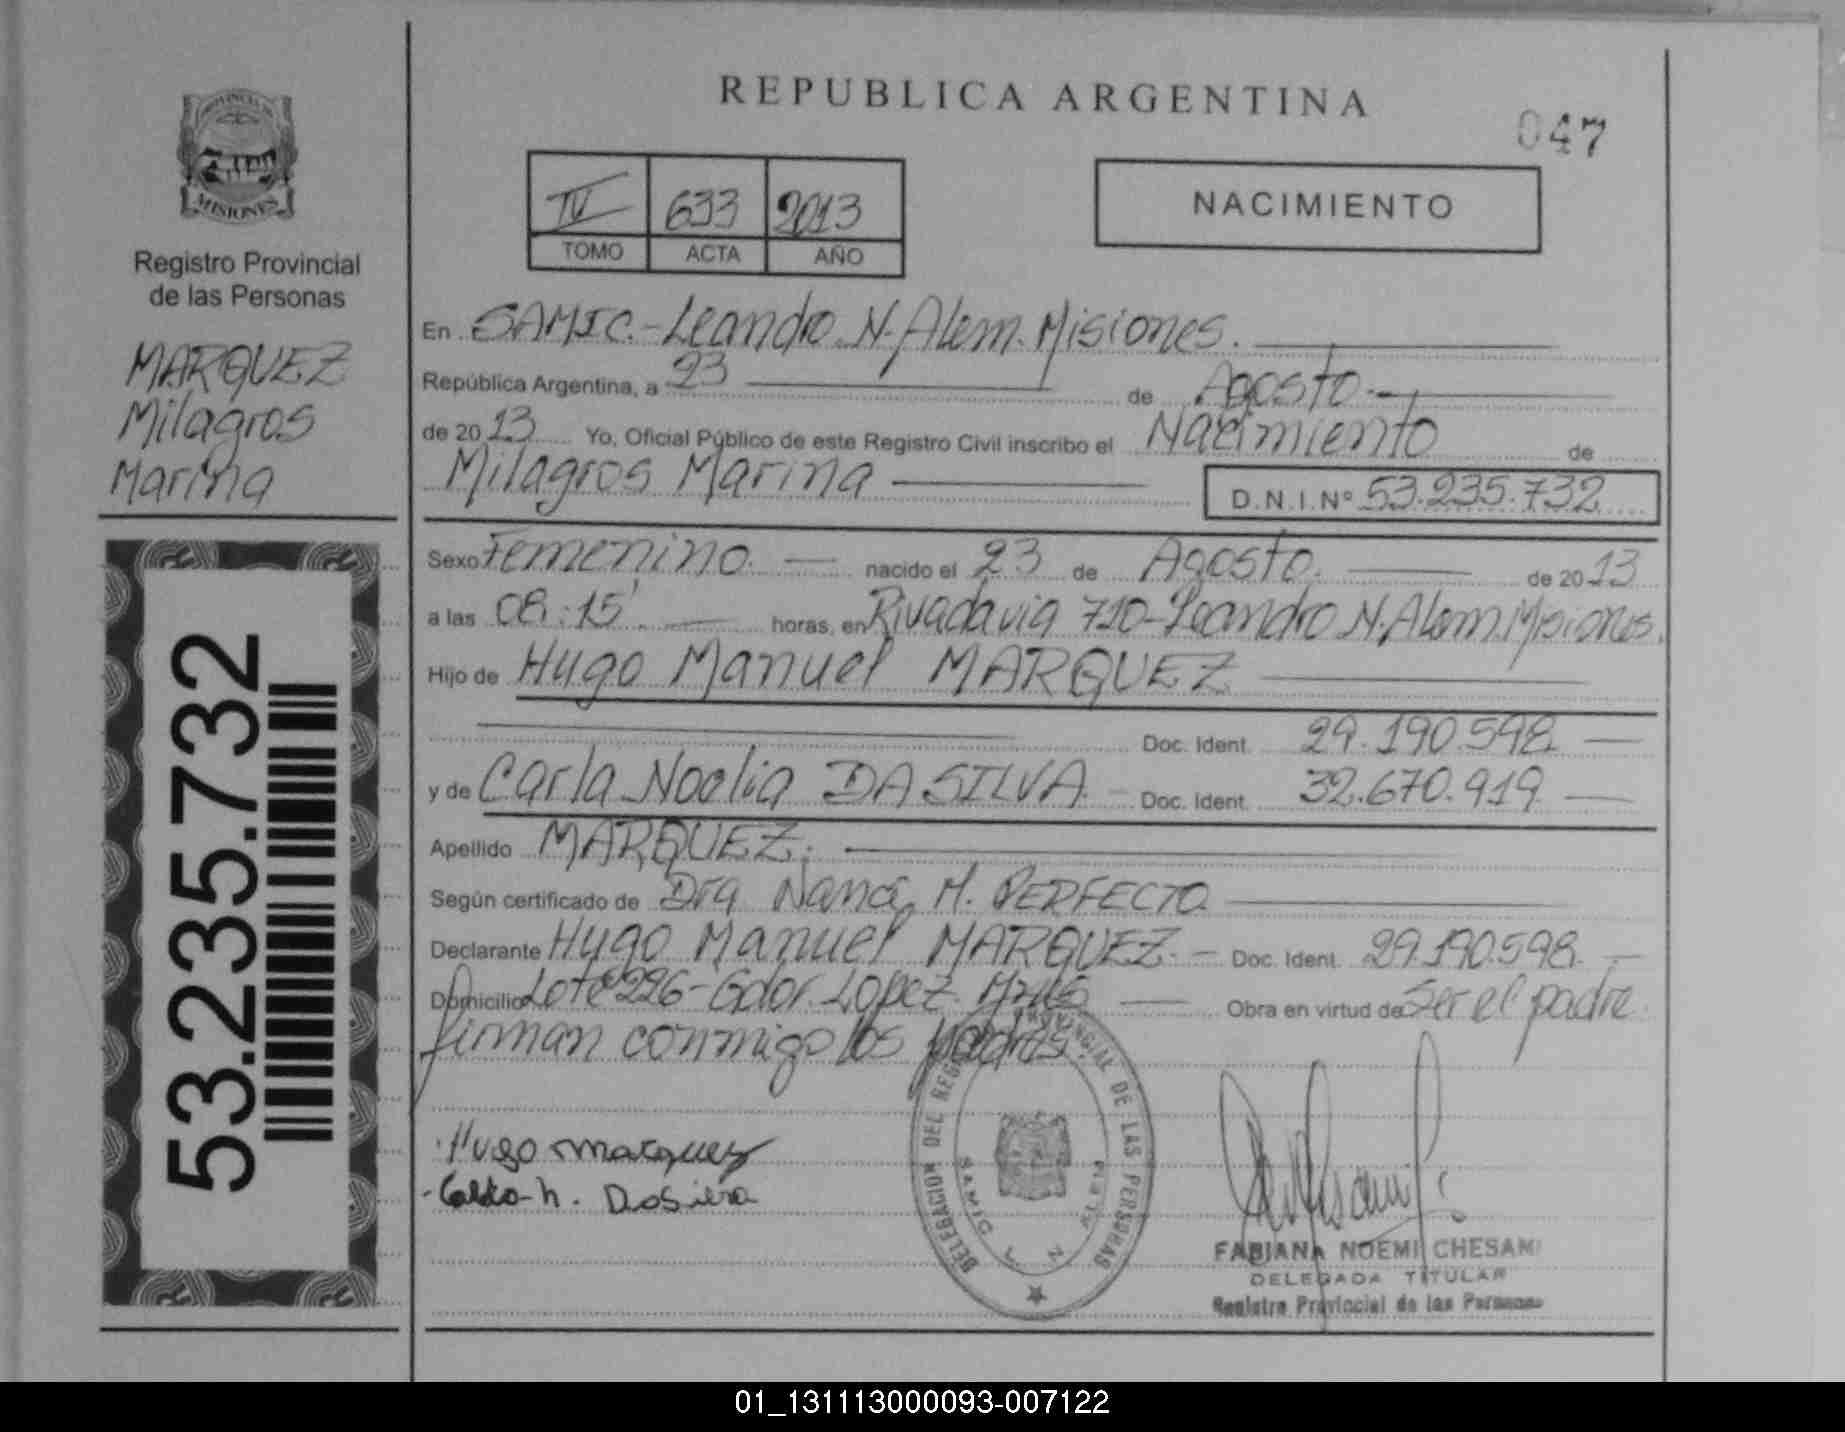 REPUBLICA ARGENTINA
047
IV 633 2013
TOMO ACTA AÑO
NACIMIENTO
PROVINCIA DE
MISIONES
Registro Provincial
de las Personas
MARQUEZ
Milagros
Marina
53.235.732
En SAMIC.-Leandro N. Alem. Misiones.
República Argentina, a 23 de Agosto.-
de 2013 Yo, Oficial Público de este Registro Civil inscribo el Nacimiento de
Milagros Marina
D.N.I.Nº 53.235.732
Sexo Femenino. nacido el 23 de Agosto. de 2013
a las 08:15' horas, en Rivadavia 710-Leandro N. Alem. Misiones.
Hijo de Hugo Manuel MARQUEZ
Doc. Ident. 29.190.598
y de Carla Noelia DA SILVA - Doc. Ident. 32.670.919
Apellido MARQUEZ.
Según certificado de Dra M. PERFECTO
Declarante Hugo Manuel MARQUEZ.- Doc. Ident. 29.190.598.
Domicilio Lote 226-Gdor. Lopez. Mnes Obra en virtud de Ser el padre.
firman conmigo los padres.
Hugo marquez
N. Dasilva
DELEGACION DEL REGISTRO PROVINCIAL DE LAS PERSONAS
SAMIC L N ALEM
FABIANA NOEMI CHESANI
DELEGADA TITULAR
Registro Provincial de las Personas
01_131113000093-007122